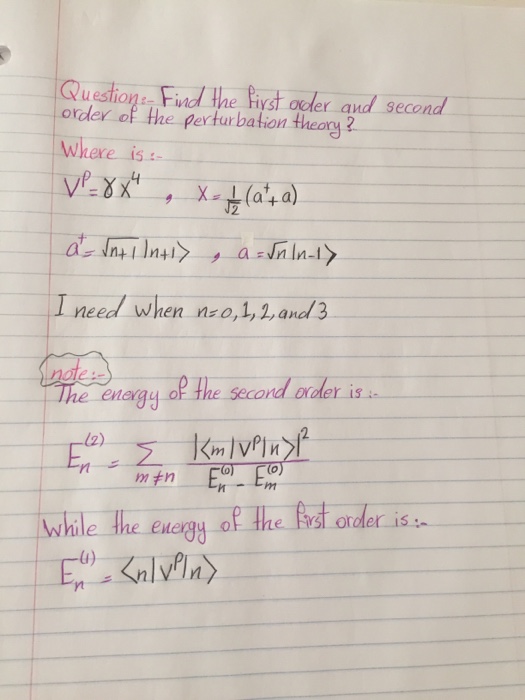 Question:- Find the first order and second
order of the perturbation theory?
Where is :-
Vᴾ=γx⁴ , X=1/√2 (a⁺+a)
a⁺=√n+1 |n+1> , a=√n |n-1>
I need when n=0,1,2,and 3
note:-
The energy of the second order is :-
Eₙ⁽²⁾ = Σ m≠n |<m|Vᴾ|n>|² / Eₙ⁽⁰⁾ - Eₘ⁽⁰⁾
While the energy of the first order is :-
Eₙ⁽¹⁾ = <n|Vᴾ|n>